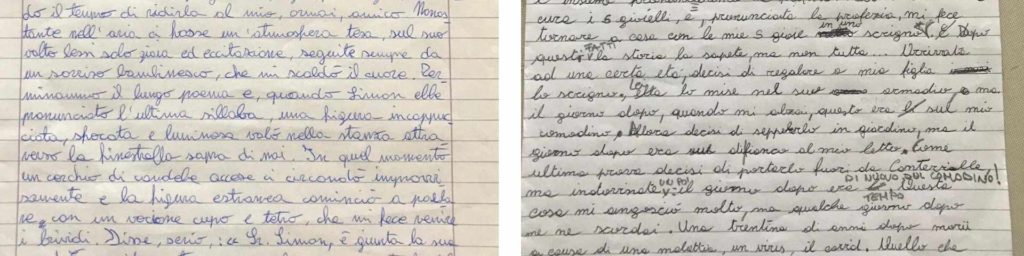 do il tempo di ridirla al mio, ormai, amico. Nono-
stante nell'aria ci fosse un'atmosfera tesa, sul suo
volto lessi solo gioia ed eccitazione, seguite sempre da
un sorriso bambinesco, che mi scaldò il cuore. Ter-
minammo il lungo poema e, quando Simon ebbe
pronunciato l'ultima sillaba, una figura incappuc-
ciata, sfocata e luminosa volò nella stanza attra
verso la finestrella sopra di noi. In quel momento
un cerchio di candele accese ci circondò improvvi-
samente e la figura estranea cominciò a parla
re, con un vocione cupo e tetro, che mi fece venire
i brividi. Disse, serio, : « Sr. Simon, è giunta la sua
cura i 5 gioielli, e, pronunciata la profezia, mi fece
tornare a casa con le mie 5 gioie in uno scrigno. Dopo
questi FATTI la storia la sapete, ma non tutta... Arrivata
ad una certa età, decisi di regalare a mia figlia
lo scrigno, lo mise nel suo armadio, ma
il giorno dopo, quando mi alzai, questo era sul mio
comodino. Allora decisi di seppellirlo in giardino, ma il
giorno dopo era di fianco al mio letto. Come
ultima prova decisi di portarlo fuori da
ma indovinate un po': il giorno dopo era DI NUOVO SUL COMODINO! Questa
cosa mi angosciò molto, ma qualche TEMPO dopo
me ne scordai. Una trentina di anni dopo morii
a causa di una malattia, un virus, il covid. Quello che